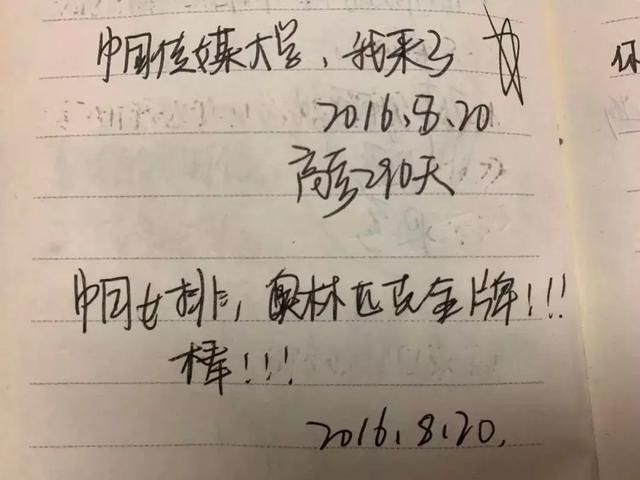 中国传媒大学,我来了
2016.8.20
高考290天
中国女排,奥林匹克金牌!!!
棒!!!
2016.8.20.